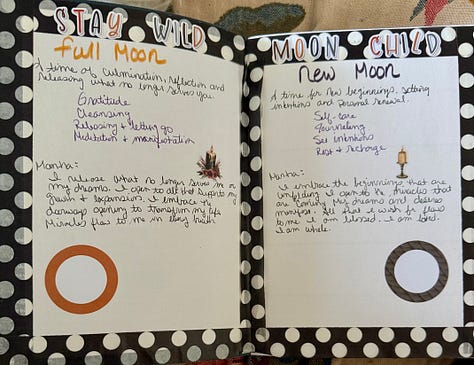 STAY WILD
full Moon
A time of culmination, reflection and
releasing what no longer serves you.
Gratitude
Cleansing
Releasing + letting go
Meditation + manifestation
Mantra:
I release what no longer serves me or
my dreams. I open to all that supports my
growth & expansion. I embrace the
doorways opening to transform my life
Miracles flow to me in every breath
MOON CHILD
new Moon
A time for new beginnings, setting
intentions and personal renewal.
Self-care
Journaling
Set intentions
Rest + recharge
Mantra:
I embrace the beginnings that are
unfolding. I open to the miracles that
are coming. My dreams and desires
manifest. All that I wish for flows
to me. I am blessed. I am loved.
I am whole.